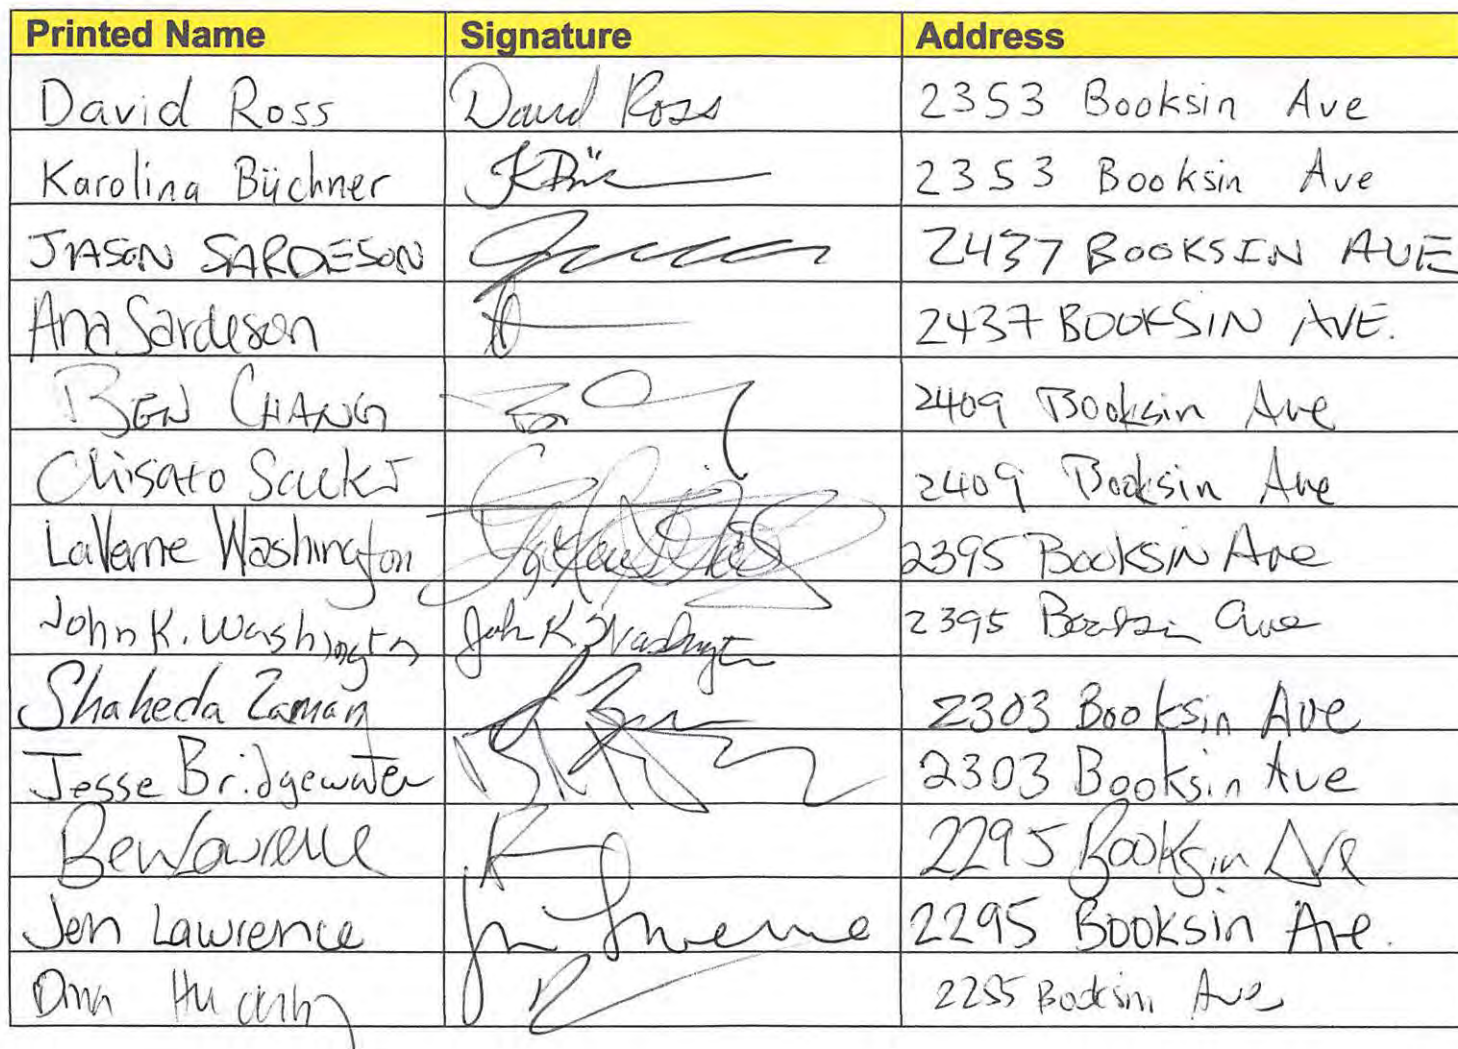 Printed Name Signature Address
David Ross David Ross 2353 Booksin Ave
Karolina Büchner KBü 2353 Booksin Ave
JASON SARDESON 2437 BOOKSIN AVE
Ana Sardeson 2437 BOOKSIN AVE.
BEN CHANG 2409 Booksin Ave
Chisato Saeki 2409 Booksin Ave
LaVerne Washington 2395 BOOKSIN Ave
John K. Washington John K. Washington 2395 Booksin Ave
Shaheda Zaman 2303 Booksin Ave
Jesse Bridgewater 2303 Booksin Ave
Ben Lawrence 2295 Booksin Ave
Jen Lawrence Jen Lawrence 2295 Booksin Ave.
2255 Booksin Ave